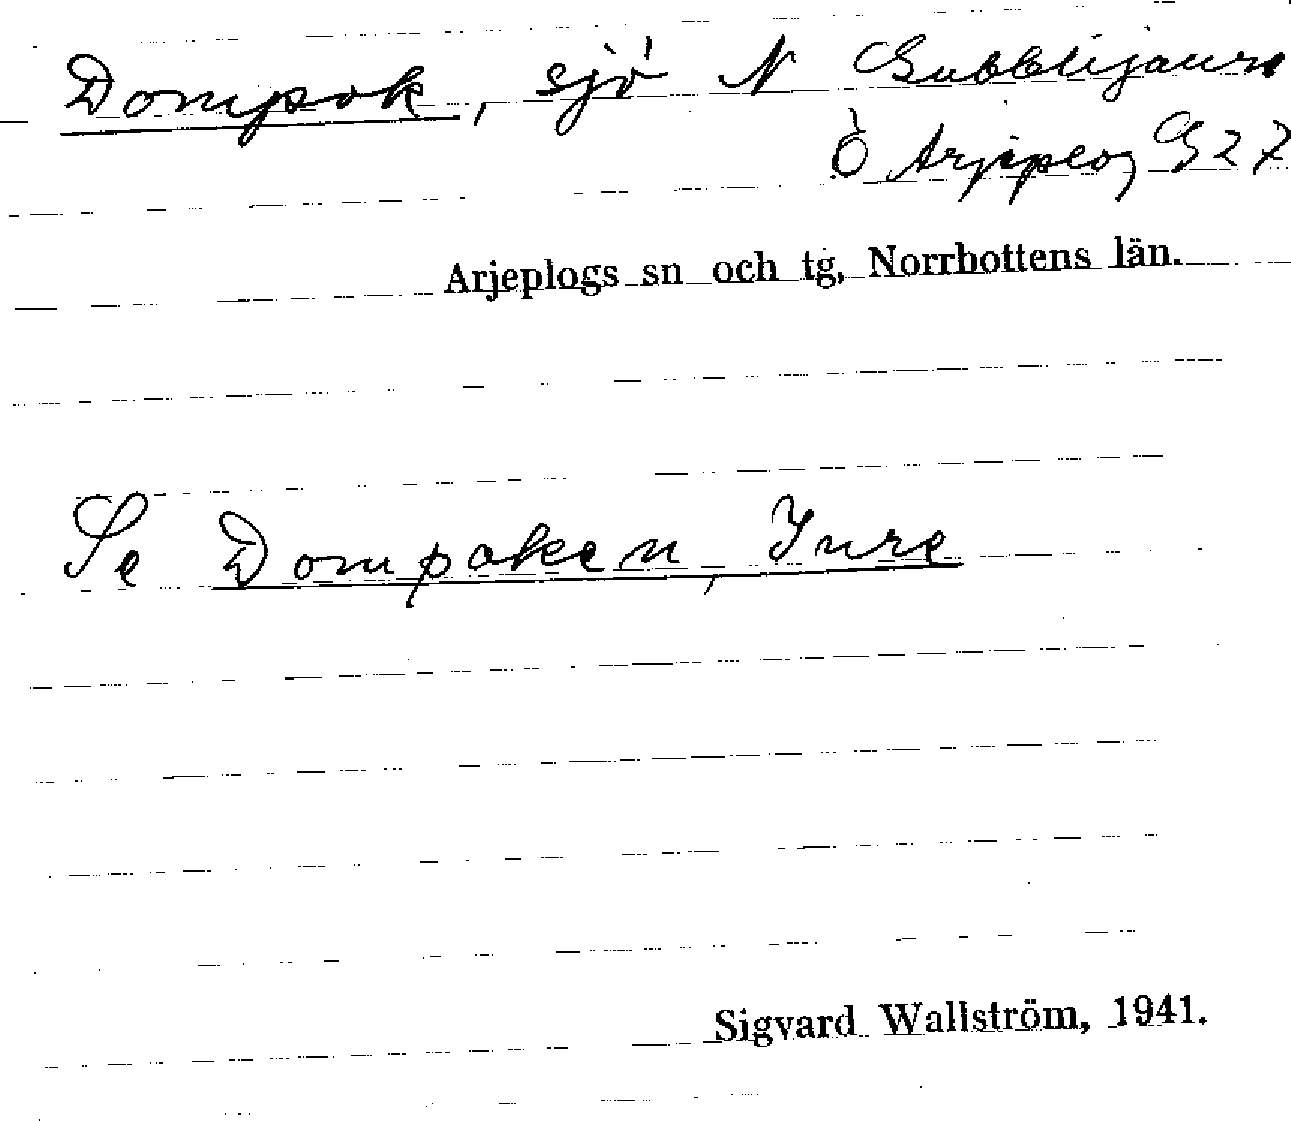 Dompok, sjö N Gubblijaure
Ö Arjeplog G 27
Arjeplogs sn och tg, Norrbottens län.
Se Dompoken, Inre
Sigvard Wallström, 1941.